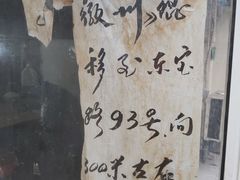 徽州
移至东宝
路93号向
300米古春